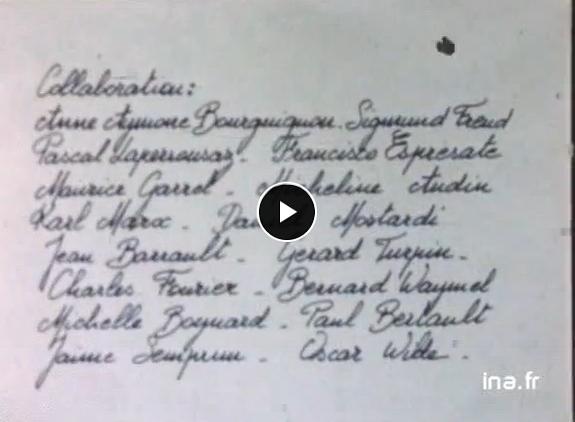 Collaboration:
Anne Aymone Bourguignon. Sigmund Freud
Pascal Laperrousaz - Francisco Espresate
Maurice Garrel - Micheline Audin
Karl Marx - Mostardi
Jean Barrault - Gerard Turpin -
Charles Fourier - Bernard Waymel
Michelle Boynard - Paul Bertault
Jaime Semprun - Oscar Wilde -
ina.fr